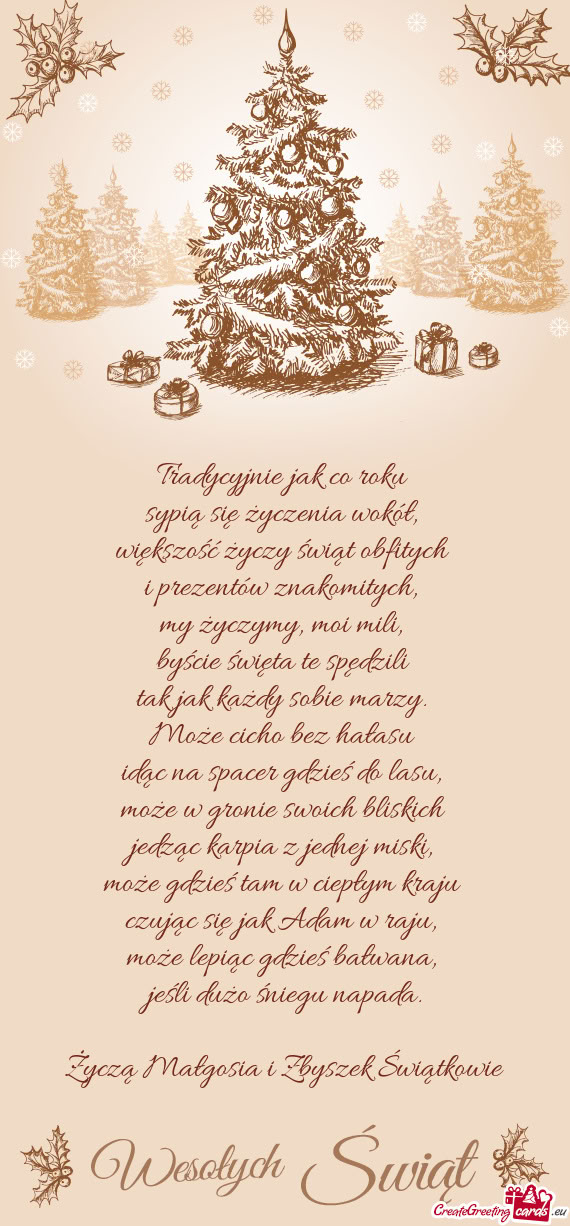 Tradycyjnie jak co roku
sypią się życzenia wokół,
większość życzy świąt obfitych
i prezentów znakomitych,
my życzymy, moi mili,
byście święta te spędzili
tak jak każdy sobie marzy.
Może cicho bez hałasu
idąc na spacer gdzieś do lasu,
może w gronie swoich bliskich
jedząc karpia z jednej miski,
może gdzieś tam w ciepłym kraju
czując się jak Adam w raju,
może lepiąc gdzieś bałwana,
jeśli dużo śniegu napada.
Życzą Małgosia i Zbyszek Świątkowie
Wesołych Świąt
CreateGreetingcards.eu